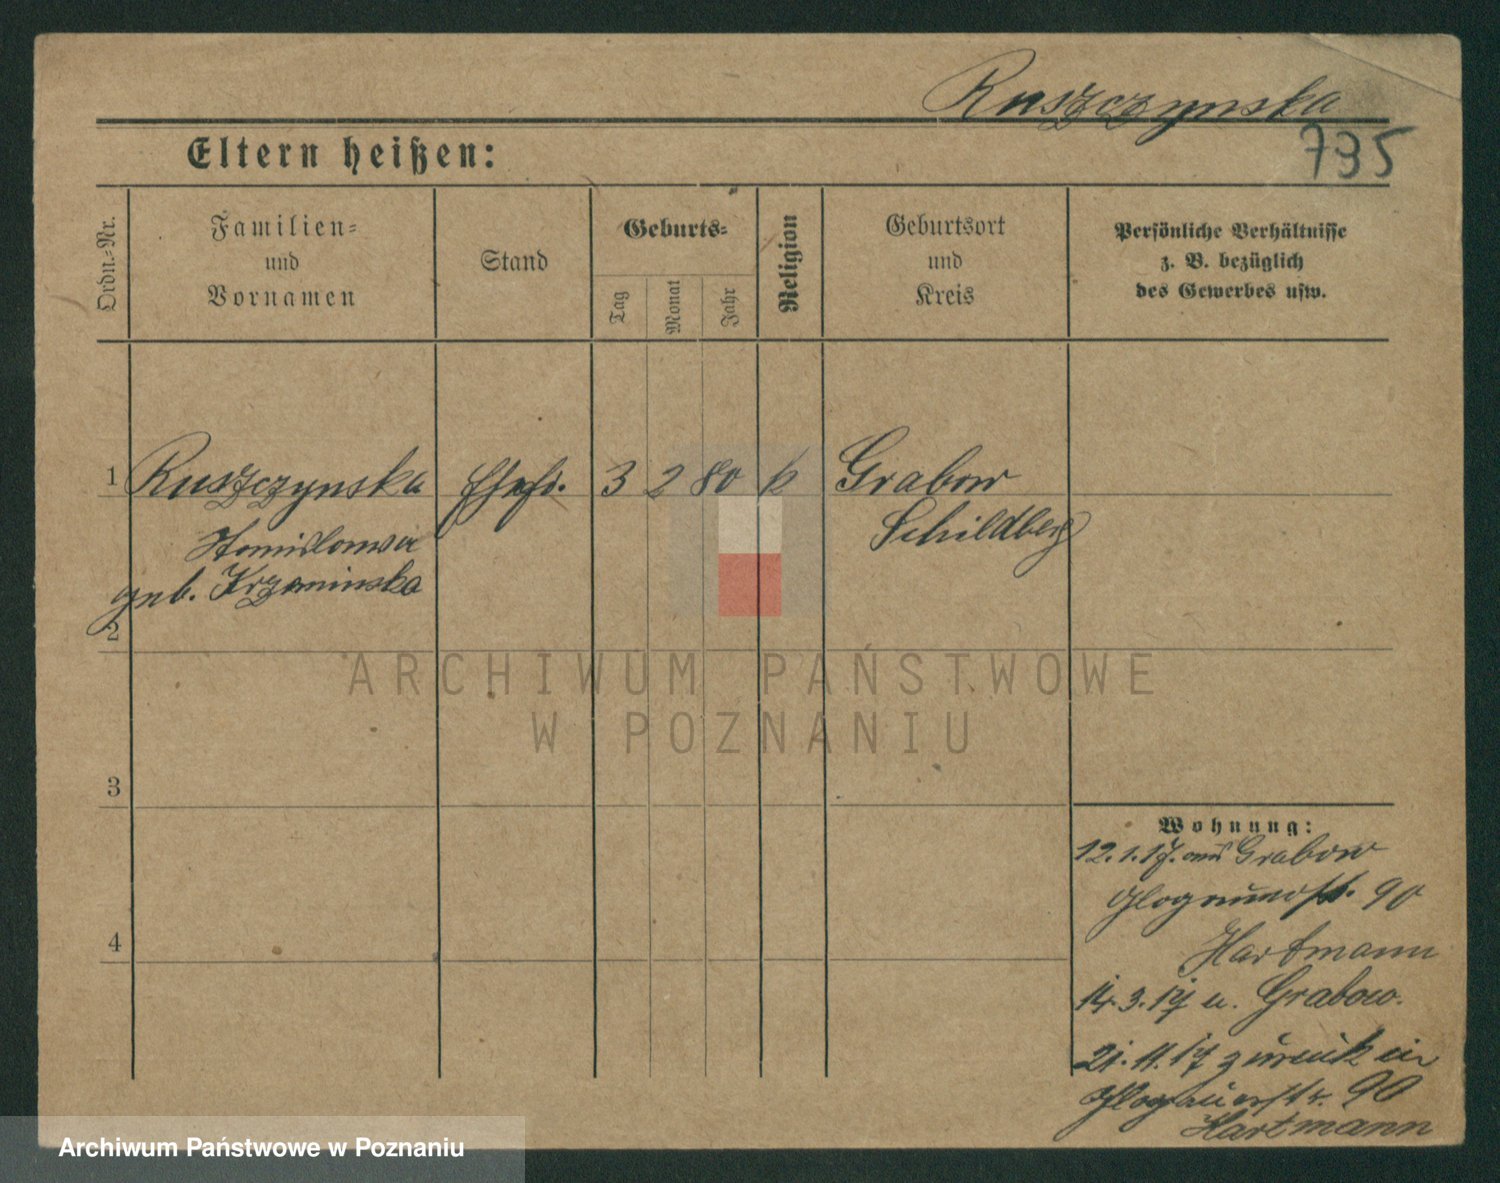 Ruszczynska
735
Eltern heißen:
Ordn.-Nr.
Familien-
und
Vornamen
Stand
Geburts-
Tag
Monat
Jahr
Religion
Geburtsort
und
Kreis
Persönliche Verhältnisse
z. B. bezüglich
des Gewerbes usw.
1 Ruszczynska Ehefr. 3 2 80 k Grabow
Schildberg
geb.
2
ARCHIWUM PAŃSTWOWE
W POZNANIU
3
Wohnung:
12.1.17. aus Grabow
90
Hartmann
4
14.3.17 n. Grabow.
21.11.17 zurück in
Glogauerstr. 90
Hartmann
Archiwum Państwowe w Poznaniu